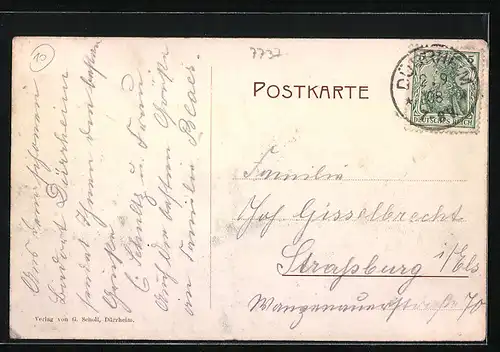 10
7737
POSTKARTE
DÜRRHEIM
DEUTSCHES REICH
Aus dem schönen
Badort Dürrheim
sendet Ihnen den besten
Grüsse
C Schultz u. Frau
Auch die besten Grüsse
an Familie
Familie
Jos Gisselbrecht
Straßburg i/Els
Wanzenauerstraße 70
Verlag von G. Scholl, Dürrheim.